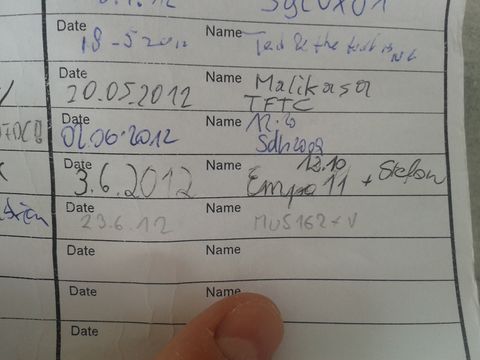 Date 18-5 2012 Name Ted & the
Date 20.05.2012 Name Malikasa
TFTC
Date 02.06.2012 Name 12.20
Sdh2009
Date 3.6.2012 Name 12.10
Empa 11 + Stefan
Date 23.6.12 Name MUS162+V
Date Name
Date Name
Date